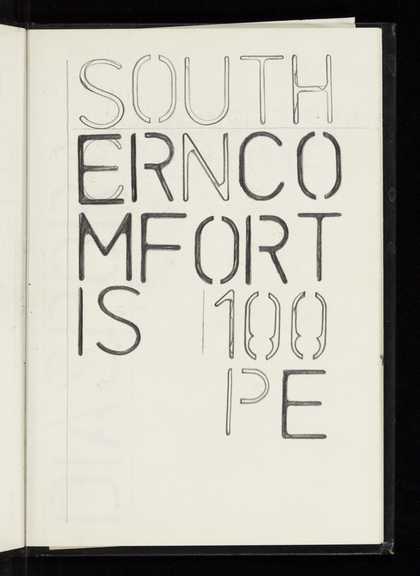 SOUTH
ERNCO
MFORT
IS 100
PE